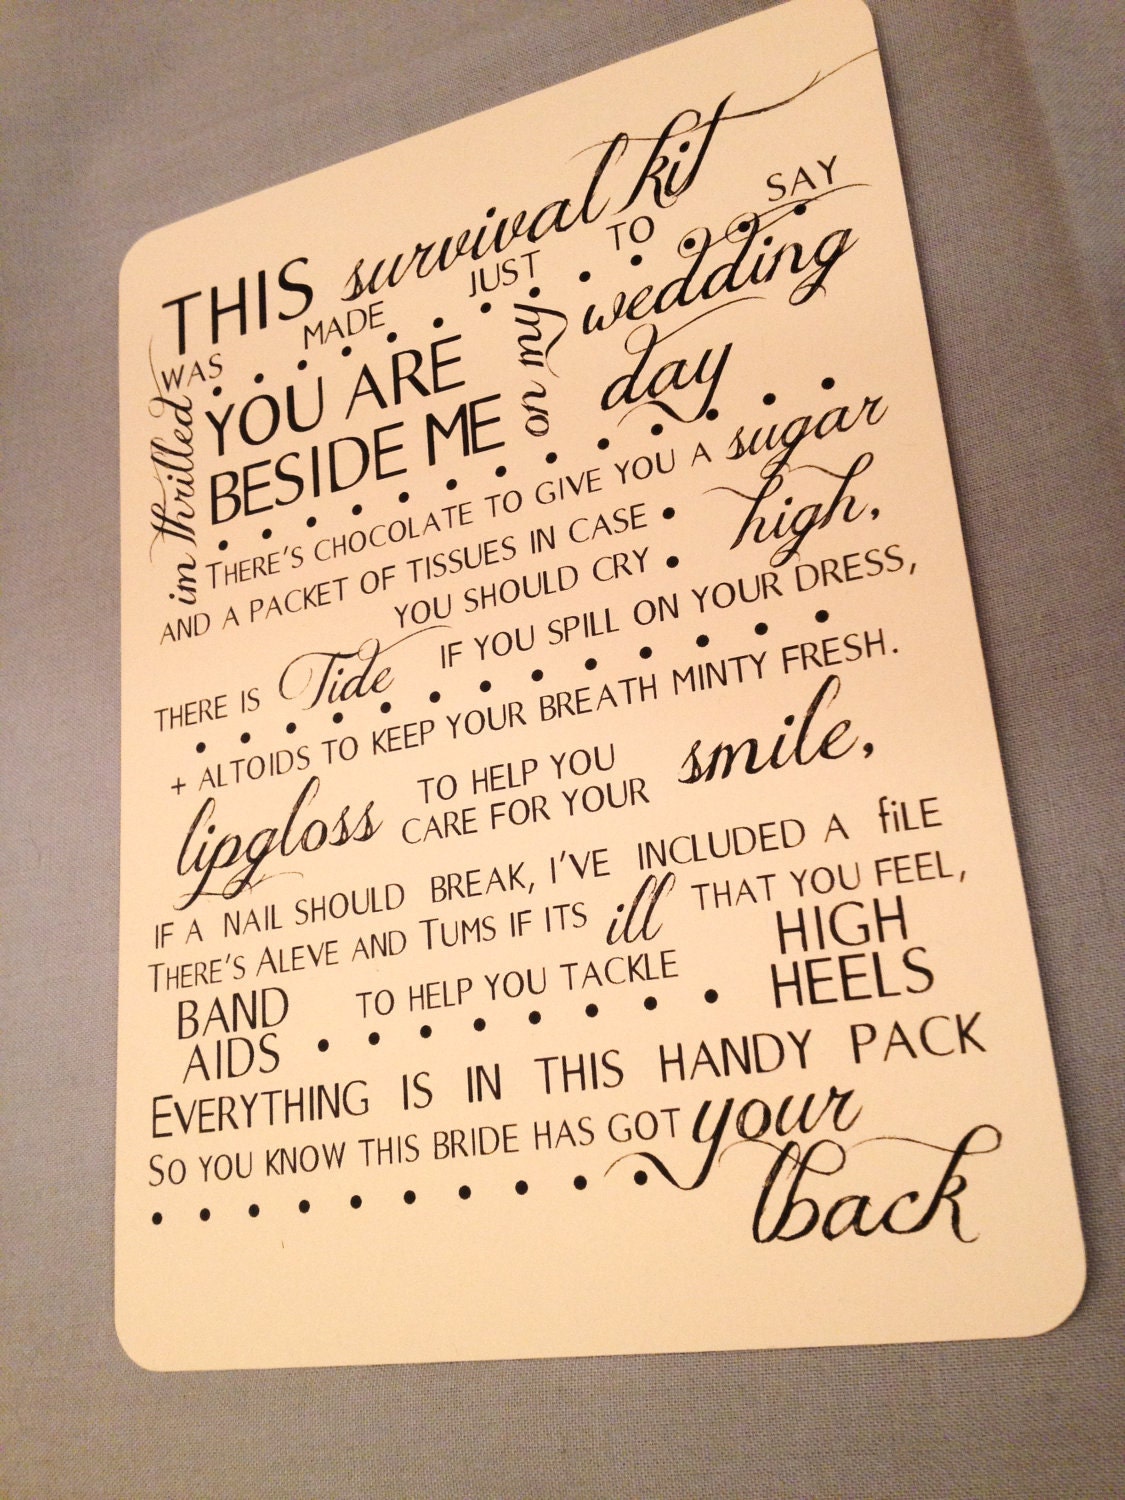 THIS survival kit
WAS MADE JUST TO SAY
im thrilled
YOU ARE
BESIDE ME
on my
wedding
day
THERE'S CHOCOLATE TO GIVE YOU A sugar
high,
AND A PACKET OF TISSUES IN CASE
YOU SHOULD CRY
THERE IS Tide IF YOU SPILL ON YOUR DRESS,
+ ALTOIDS TO KEEP YOUR BREATH MINTY FRESH.
lipgloss TO HELP YOU
CARE FOR YOUR smile,
IF A NAIL SHOULD BREAK, I'VE INCLUDED A fiLE
THERE'S ALEVE AND TUMS IF ITS ill THAT YOU FEEL,
BAND
AIDS TO HELP YOU TACKLE HIGH
HEELS
EVERYTHING IS IN THIS HANDY PACK
SO YOU KNOW THIS BRIDE HAS GOT your
back